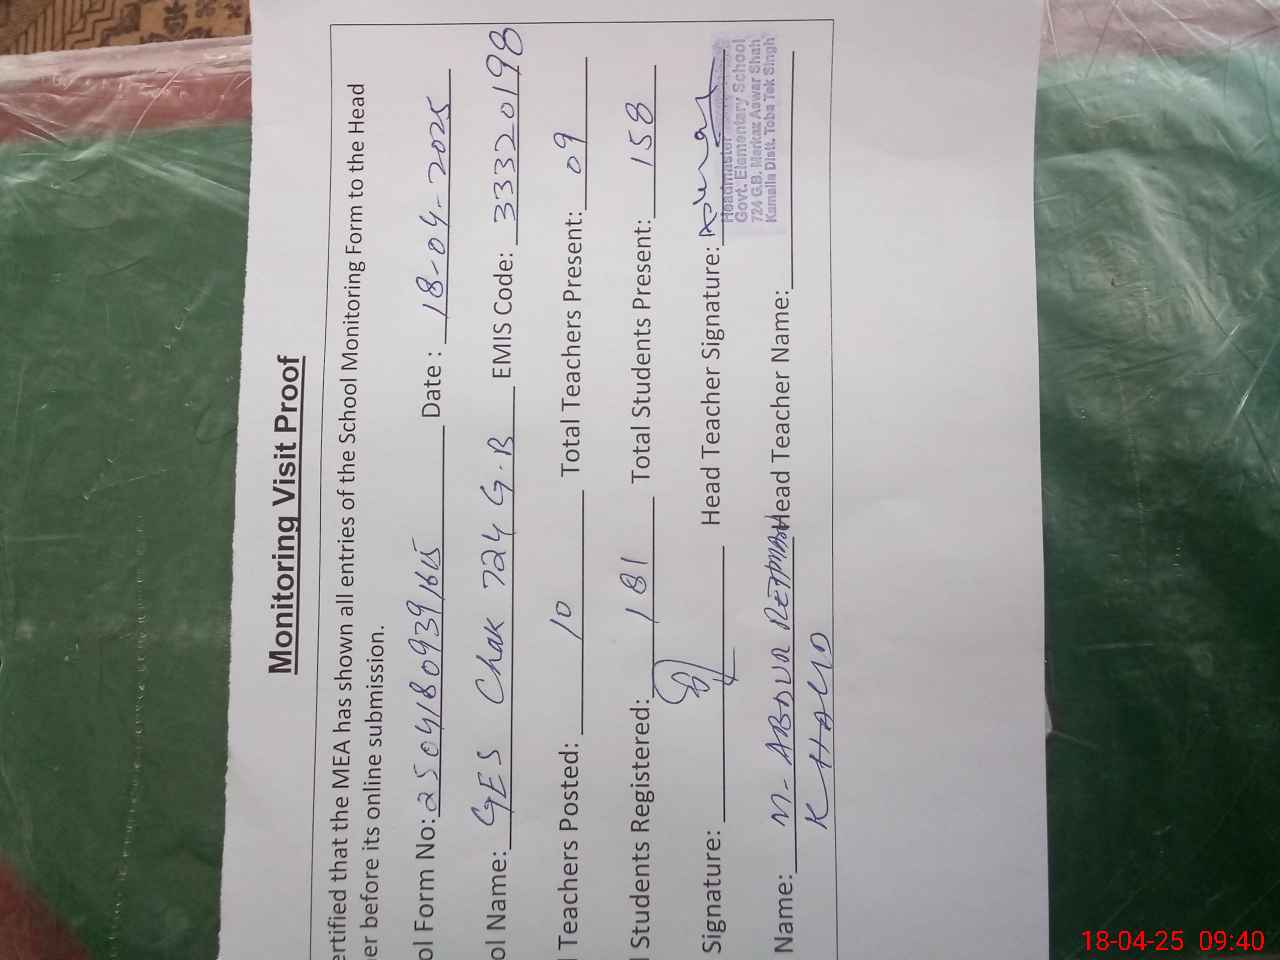 Monitoring Visit Proof
ertified that the MEA has shown all entries of the School Monitoring Form to the Head
er before its online submission.
ol Form No: 25041809391615 Date : 18-04-2025
ol Name: GES Chak 724 G.B EMIS Code: 33320198
l Teachers Posted: 10 Total Teachers Present: 09
l Students Registered: 181 Total Students Present: 158
Signature: Head Teacher Signature:
Headmaster
Govt. Elementary School
724 G.B. Markaz Aswar Shah
Kamalia Distt. Toba Tek Singh
Name: M. ABDUR REHMAN Head Teacher Name:
KHALID
18-04-25 09:40